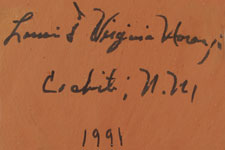 Louis & Virginia Naranjo
Cochiti, N.M,
1991